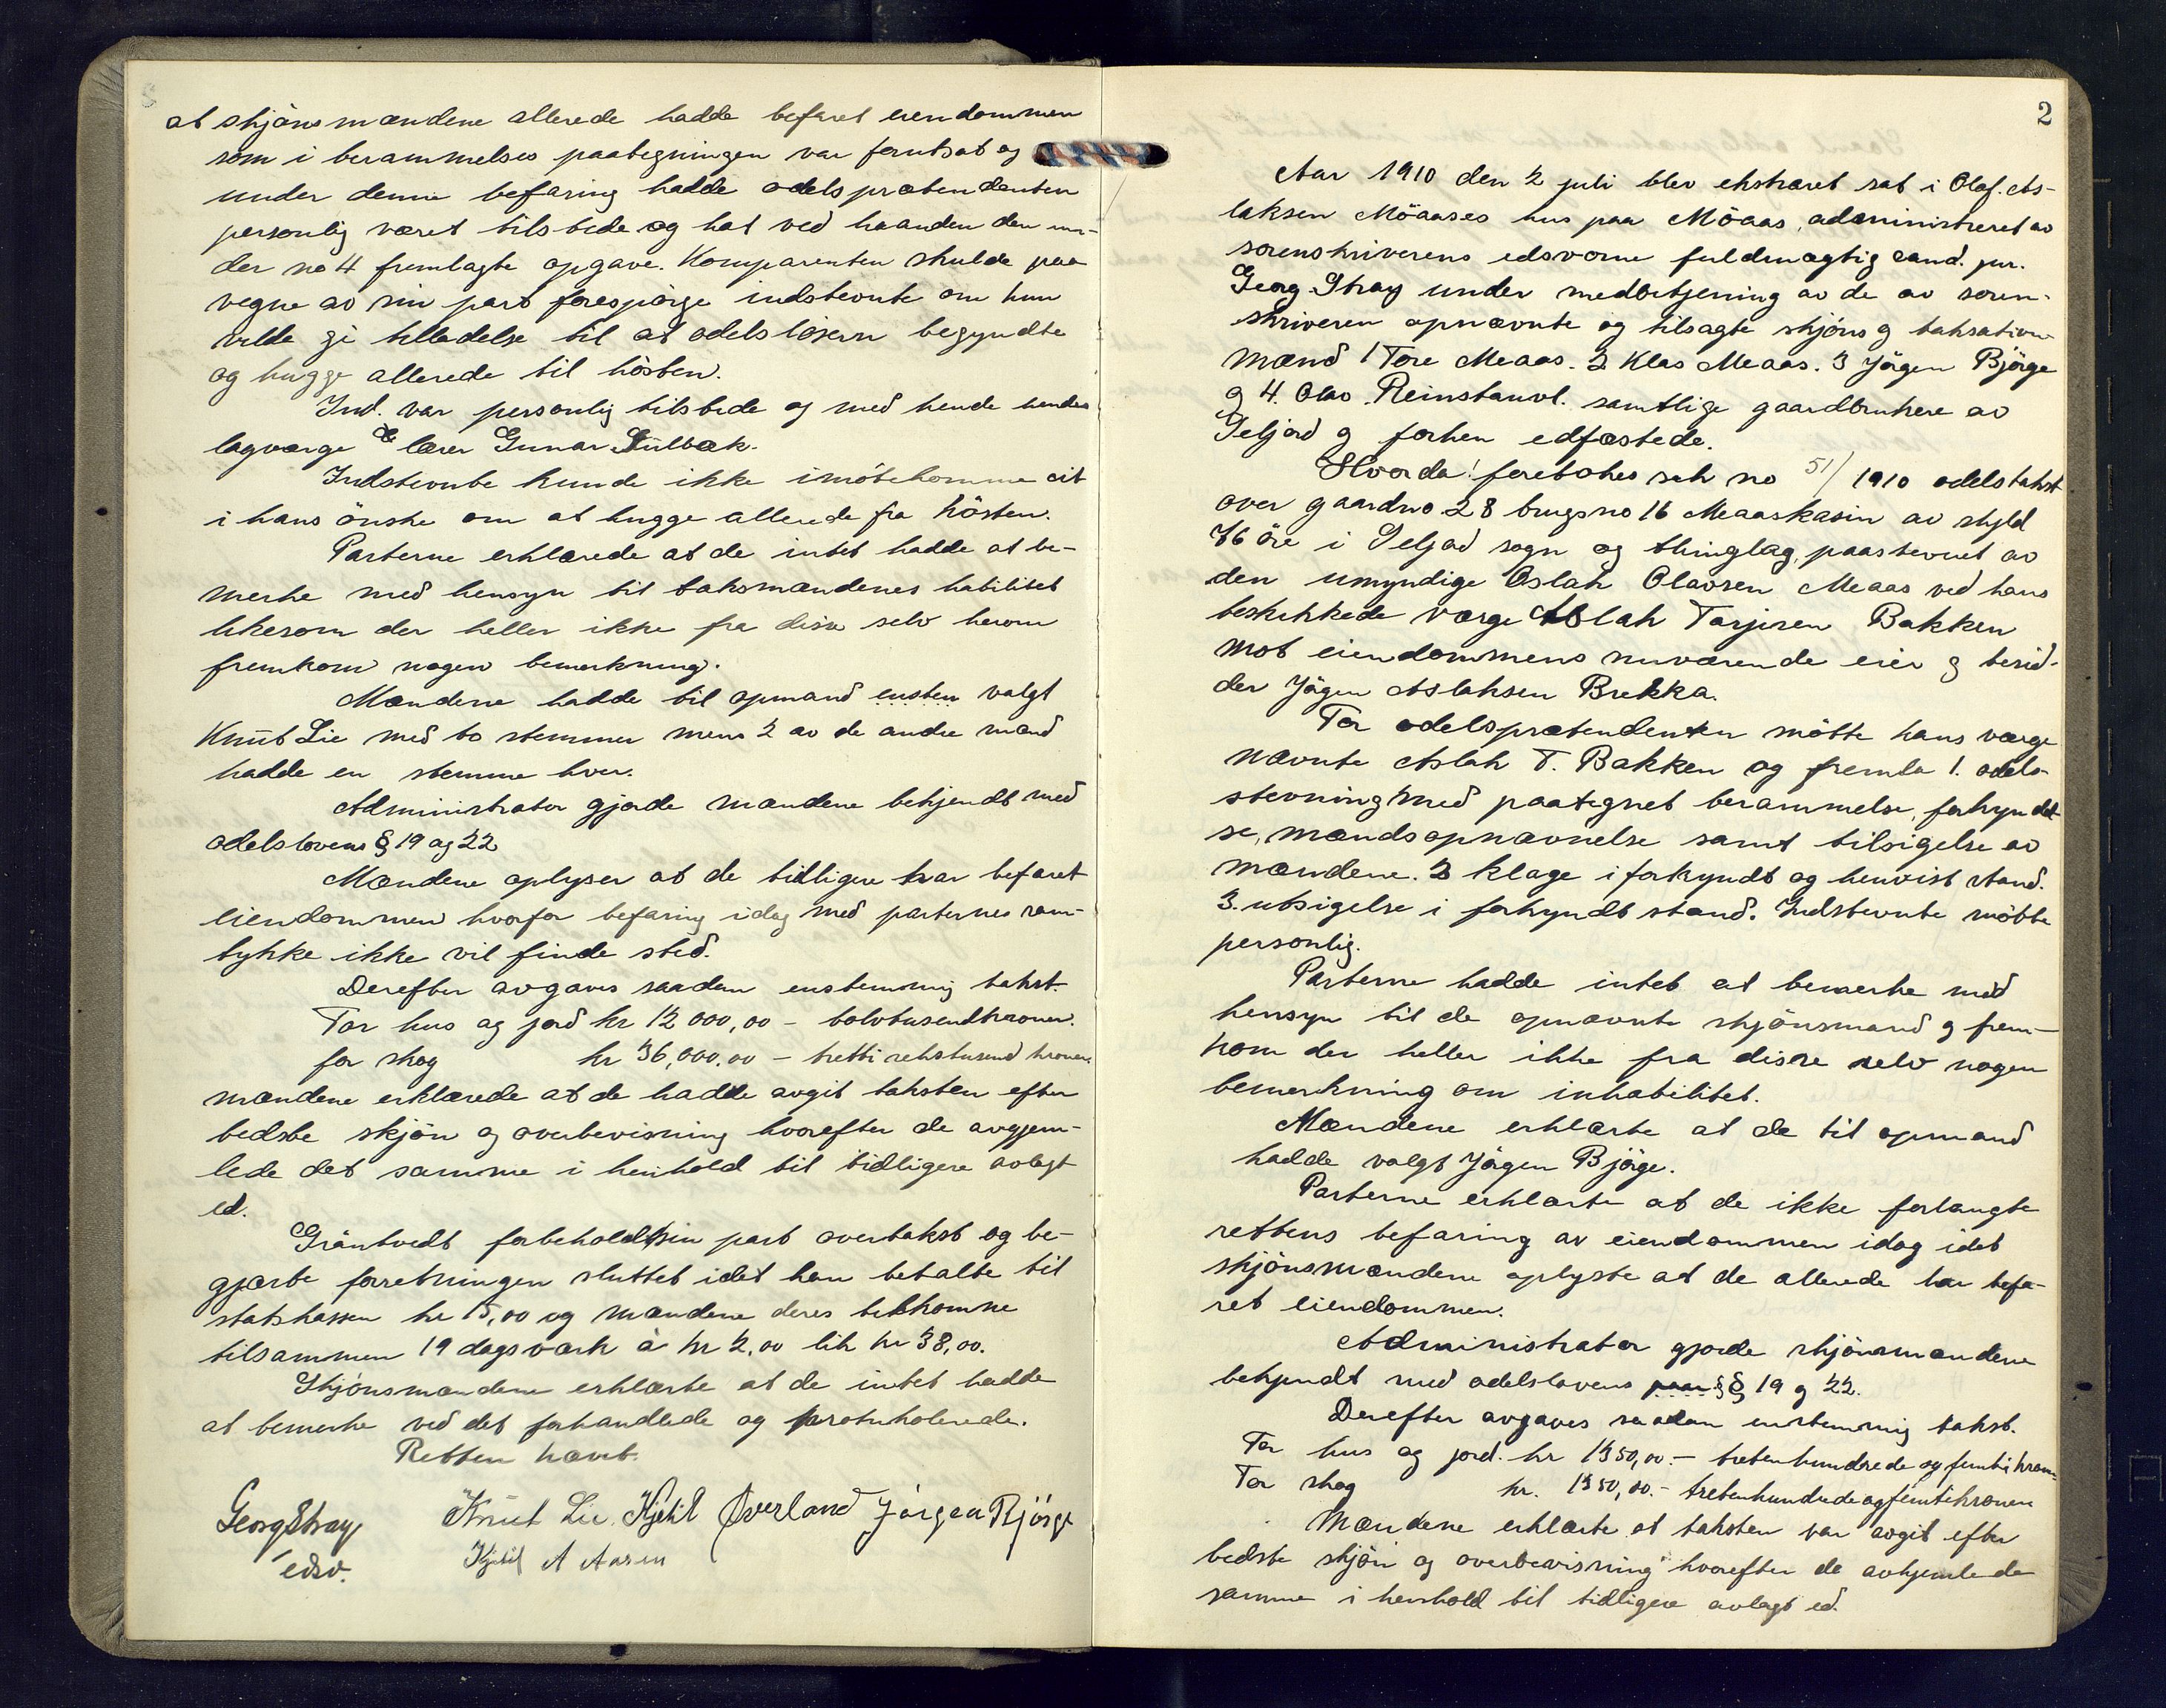 at skjönsmændene allerede hadde befaret eiendommen
som i berammelses paategningen var forutsat og
under denne befaring hadde odelsprætendenten
personlig været tilstede og hat ved haanden den un-
der no 4 fremlagte opgave. Komparenten skulde paa
vegne av sin part forespörge indstevnte om hun
vilde gi tilladelse til at odelslöseren begyndte
og hugge allerede til hösten.
Ind. var personlig tilstede og med hende hendes
lagværge lærer Gunar Sulbæk.
Indstevnte kunde ikke imötekomme cit
i hans önske om at hugge allerede fra hösten.
Parterne erklærede at de intet hadde at be-
merke med hensyn til taksmændenes habilitet
likesom der heller ikke fra disse selv herom
fremkom nogen bemerkning.
Mændene hadde til opmand ensten valgt
Knut Lie med to stemmer mens 2 av de andre mænd
hadde en stemme hver.
Administrator gjorde mændene bekjendt med
odelslovens § 19 og 22
Mændene oplyser at de tidligere har befaret
eiendommen hvorfor befaring idag med parternes sam-
tykke ikke vil finde sted.
Derefter avgaves saadan enstemmig takst.
For hus og jord kr 12 000,00 - tolvtusendkroner.
for skog kr 36,000.00 - trettisekstusend kroner.
mændene erklærede at de hadde avgit taksten efter
bedste skjön og overbevisning hvorefter de avhjem-
lede det samme i henhold til tidligere avlagt
ed.
Gröntvedt forbeholdt sin part overtakst og be-
gjærte forretningen sluttet idet han betalte til
statskassen kr 15,00 og mændene deres tilkomne
tilsammen 19 dagsværk à kr 2,00 lik kr 38,00.
Skjönsmændene erklærte at de intet hadde
at bemerke ved det forhandlede og protokolerede.
Retten hævet.
Georg Stray Knut Lie. Kjetil Øverland Jörgen Bjórge
edsv. Kjetil A Aasen
2
Aar 1910 den 2 juli blev ekstraret sat i Olaf. As-
laksen Möaases hus paa Möaas, administreret av
sorenskriverens edsvorne fuldmægtig cand. jur.
Georg Stray under medbetjening av de av soren-
skriveren opnævnte og tilsagte skjöns og taksations
mænd 1 Tore Meaas. 2 Klas Meaas. 3 Jörgen Bjørge
og 4. Olav Reinstauvl. samtlige gaardbrukere av
Seljord og forhen edfæstede.
Hvorda! foretokes sak no 51/1910 odelstakst
over gaardno 28 brugsno 16 Meaaskasin av skyld
76 öre i Seljord sogn og thinglag, paastevnet av
den umyndige Oslak Olavsen Meaas ved hans
beskikkede værge Aslak Tarjesen Bakken
mot eiendommens nuværende eier og besid-
der Jörgen Aslaksen Brekka.
For odelsprætendenten mötte hans værge
nævnte Aslak T. Bakken og fremla 1. odels-
stevning med paategnet berammelse, forkyndel-
se, mandsopnævnelse samt tilsigelse av
mændene. 2 klage i forkyndt og henvist stand.
3. utsigelse i forkyndt stand. Indstevnte mötte
personlig.
Parterne hadde intet at bemerke med
hensyn til de opnævnte skjönsmænd og frem-
kom der heller ikke fra disse selv nogen
bemerkning om inhabilitet.
Mændene erklærte at de til opmand
hadde valgt Jörgen Bjørge.
Parterne erklærte at de ikke forlangte
rettens befaring av eiendommen idag idet
skjönsmændene oplyste at de allerede har befa-
ret eiendommen.
Administrator gjorde skjönsmændene
bekjendt med odelslovens §§ 19 og 22.
Derefter avgaves saadan enstemmig takst.
For hus og jord. kr 1350,00.- trettenhundrede og femti kroner
For skog kr. 1350,00.- trettenhundrede og femti kroner
Mændene erklærte at taksten var avgit efter
bedste skjön og overbevisning hvorefter de avhjemlede
samme i henhold til tidligere avlagt ed.